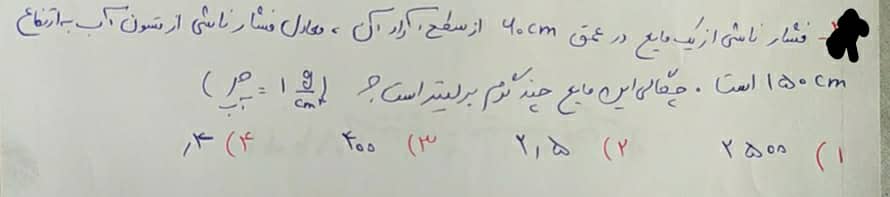 - فشار ناشی از یک مایع در عمق ۶۰cm از سطح آزاد آن ، معادل فشار ناشی از ستون آب به ارتفاع
۱۵۰cm است . چگالی این مایع چند گرم بر لیتر است ؟ (ρآب = ۱ g/cm³)
۱) ۲۵۰۰ ۲) ۲٫۵ ۳) ۴۰۰ ۴) ٫۴